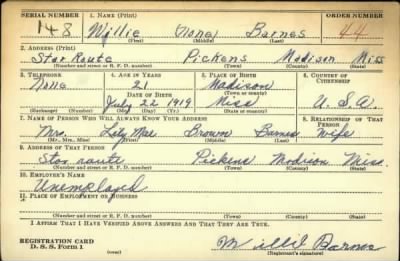 SERIAL NUMBER 1. NAME (Print) ORDER NUMBER
148 Willie None Barnes 44
(First) (Middle) (Last)
2. ADDRESS (Print)
Star Route Pickens Madison Miss
(Number and street or R. F. D. number) (Town) (County) (State)
3. TELEPHONE 4. AGE IN YEARS 5. PLACE OF BIRTH 6. COUNTRY OF CITIZENSHIP
None 21 Madison
DATE OF BIRTH (Town or county)
July 22 1919 Miss U.S.A.
(Exchange) (Number) (Mo.) (Day) (Yr.) (State or country)
7. NAME OF PERSON WHO WILL ALWAYS KNOW YOUR ADDRESS 8. RELATIONSHIP OF THAT PERSON
Mrs. Mae Brown Barnes wife
(Mr., Mrs., Miss) (First) (Middle) (Last)
9. ADDRESS OF THAT PERSON
Star route Pickens Madison Miss.
(Number and street or R. F. D. number) (Town) (County) (State)
10. EMPLOYER'S NAME
Unemployed
11. PLACE OF EMPLOYMENT OR BUSINESS
(Number and street or R. F. D. number) (Town) (County) (State)
I AFFIRM THAT I HAVE VERIFIED ABOVE ANSWERS AND THAT THEY ARE TRUE.
REGISTRATION CARD
D. S. S. Form 1 Willie Barnes
(Registrant's signature)